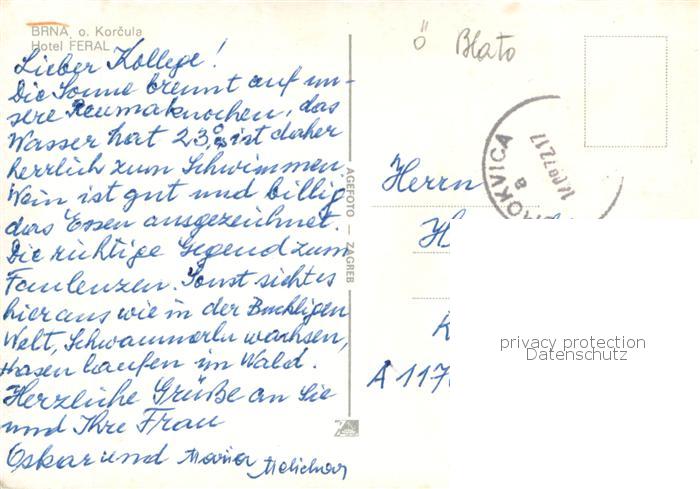 BRNA o. Korčula
Hotel FERAL
Lieber Kollege!
Die Sonne brennt auf un-
sere Reumaknochen, das
Wasser hat 23,° ist daher
herrlich zum Schwimmen.
Wein ist gut und billig
das Essen ausgezeichnet.
Die richtige Gegend zum
Faulenzen. Sonst sieht es
hier aus wie in der Buckligen
Welt, Schwammerln wachsen,
Hasen laufen im Wald.
Herzliche Grüße an Sie
und Ihre Frau
Oskar und Maria Melichar
AGEFOTO — ZAGREB
ö Blato
Herrn
A 117
privacy protection
Datenschutz